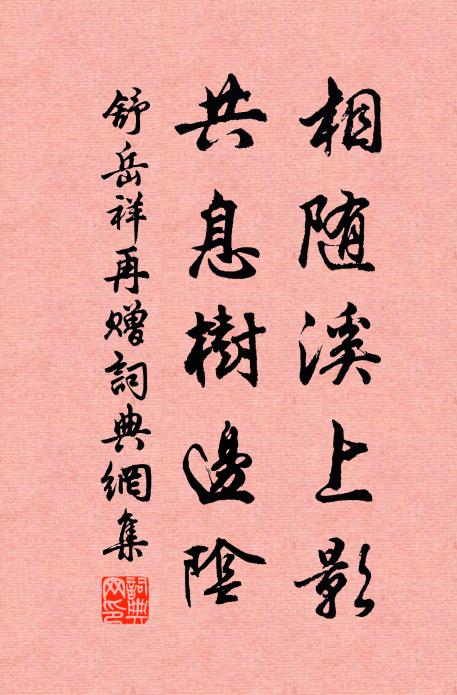 相随溪上影
共息樹邊陰
舒岳祥再贈詞典網集
詞典网印